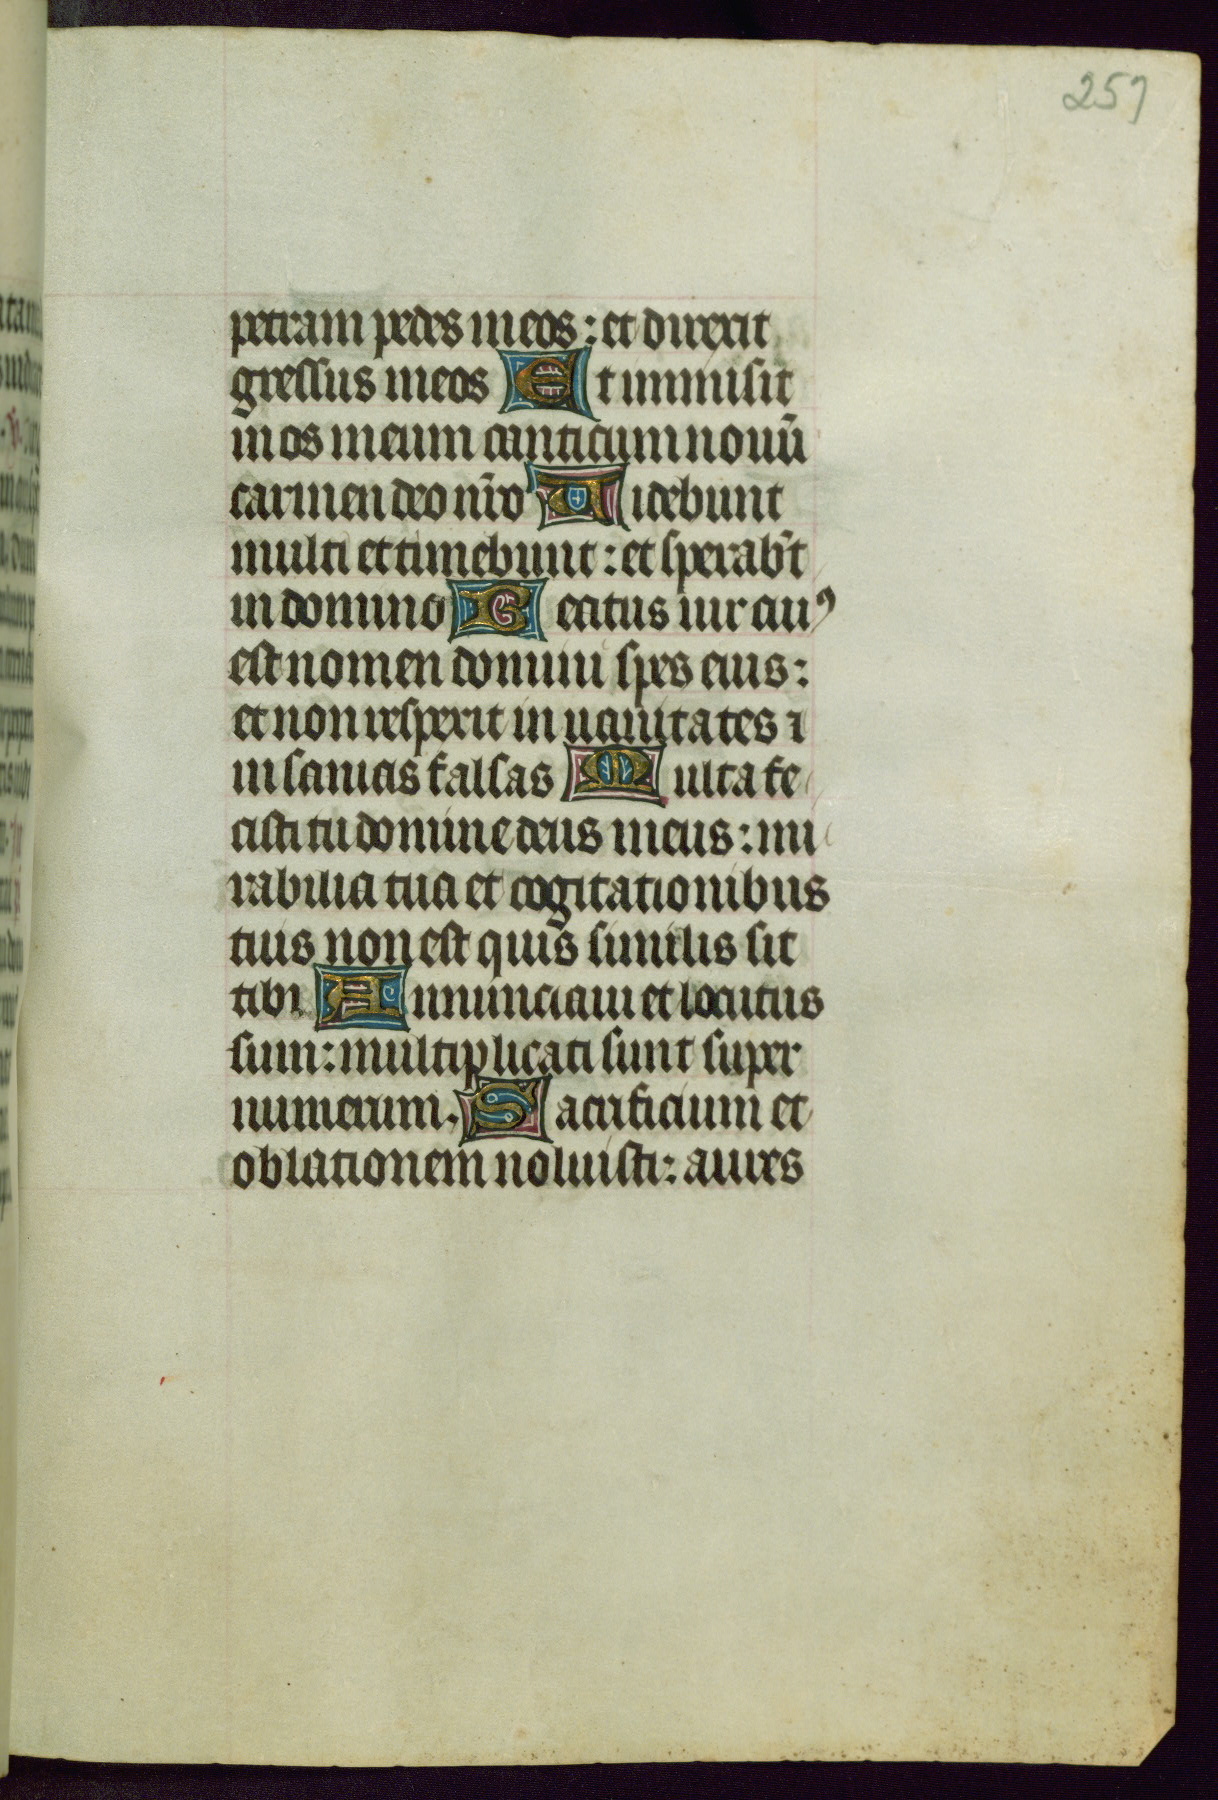 257
petram pedes meos : et direxit
gressus meos Et inmisit
in os meum canticum nouū
carmen deo nr̄o Uidebunt
multi et timebunt : et sperab̄t
in domino Beatus uir cuiꝰ
est nomen domini spes eius :
et non respexit in uanitates ⁊
insanias falsas Multa fe
cisti tu domine deus meus : mi
rabilia tua et cogitationibus
tuis non est quis similis sit
tibi Annunciaui et locutus
sum : multiplicati sunt super
numerum. Sacrificium et
oblationem noluisti : aures